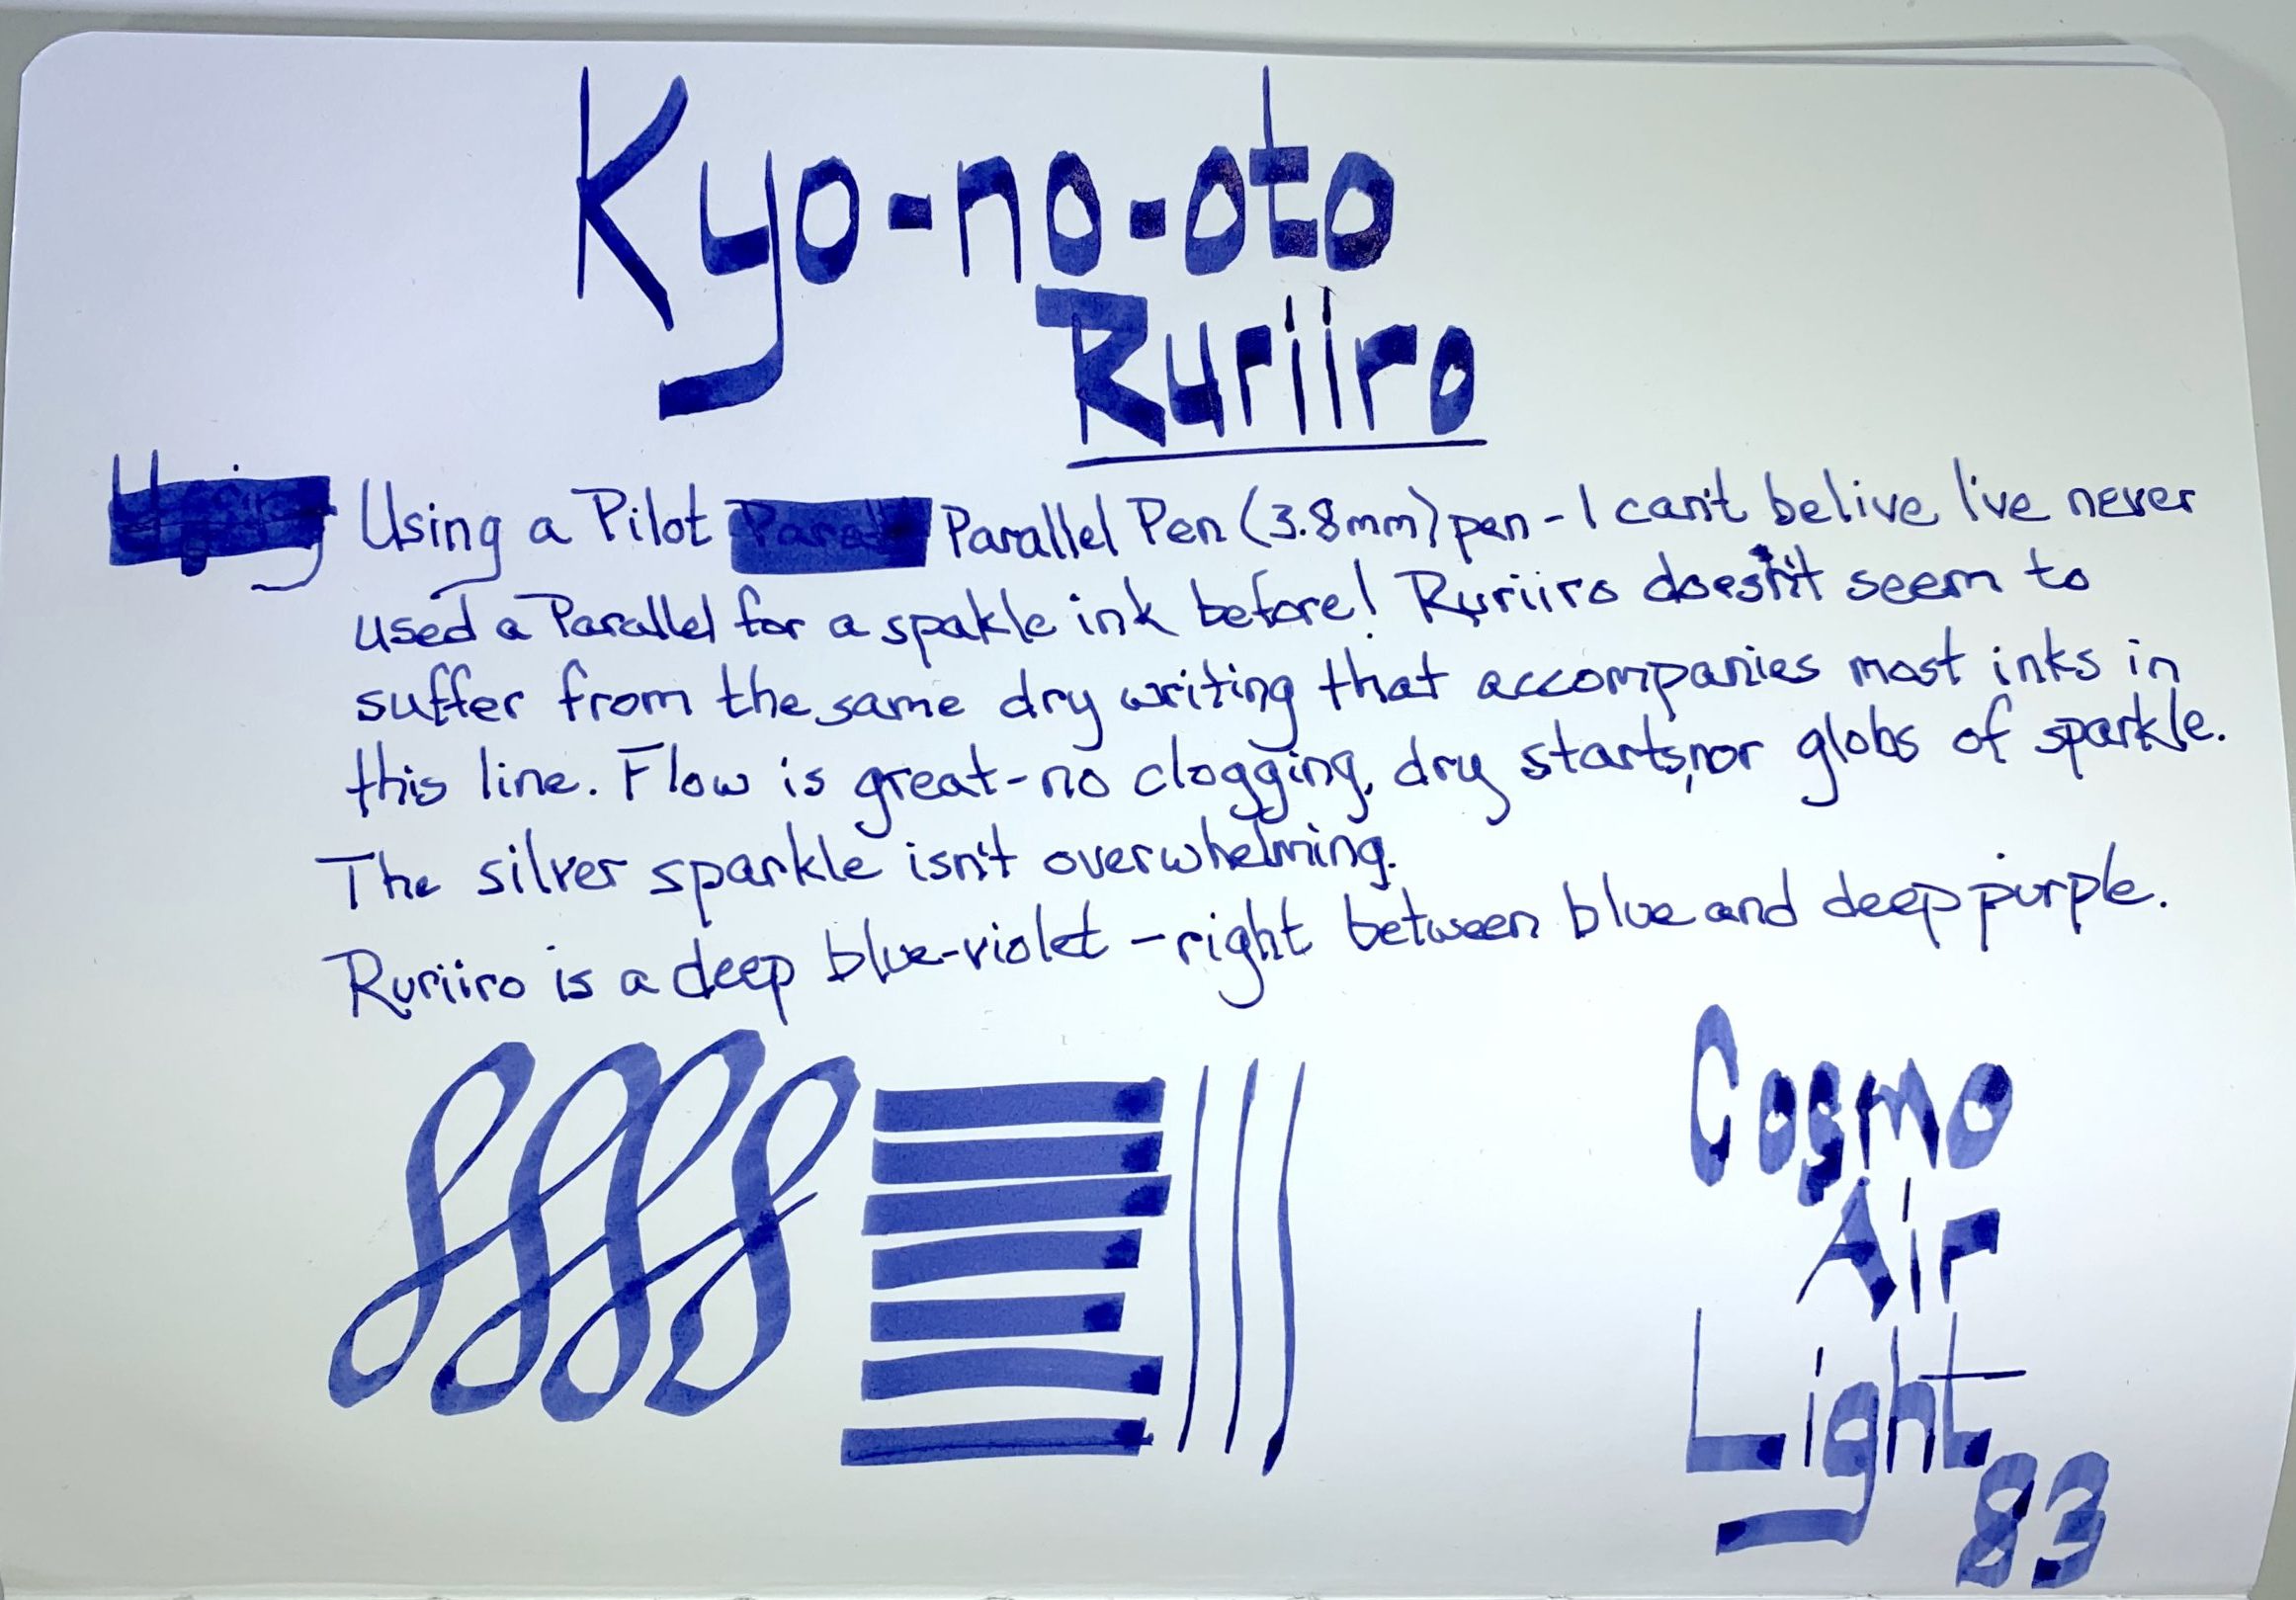 Kyo-no-oto
Ruriiro
Using a Pilot Parallel Pen (3.8mm) pen - I can't belive I've never
used a Parallel for a spakle ink before! Ruriiro doesn't seem to
suffer from the same dry writing that accompanies most inks in
this line. Flow is great - no clogging, dry starts, nor globs of sparkle.
The silver sparkle isn't overwhelming.
Ruriiro is a deep blue-violet - right between blue and deep purple.
Cosmo
Air
Light
83